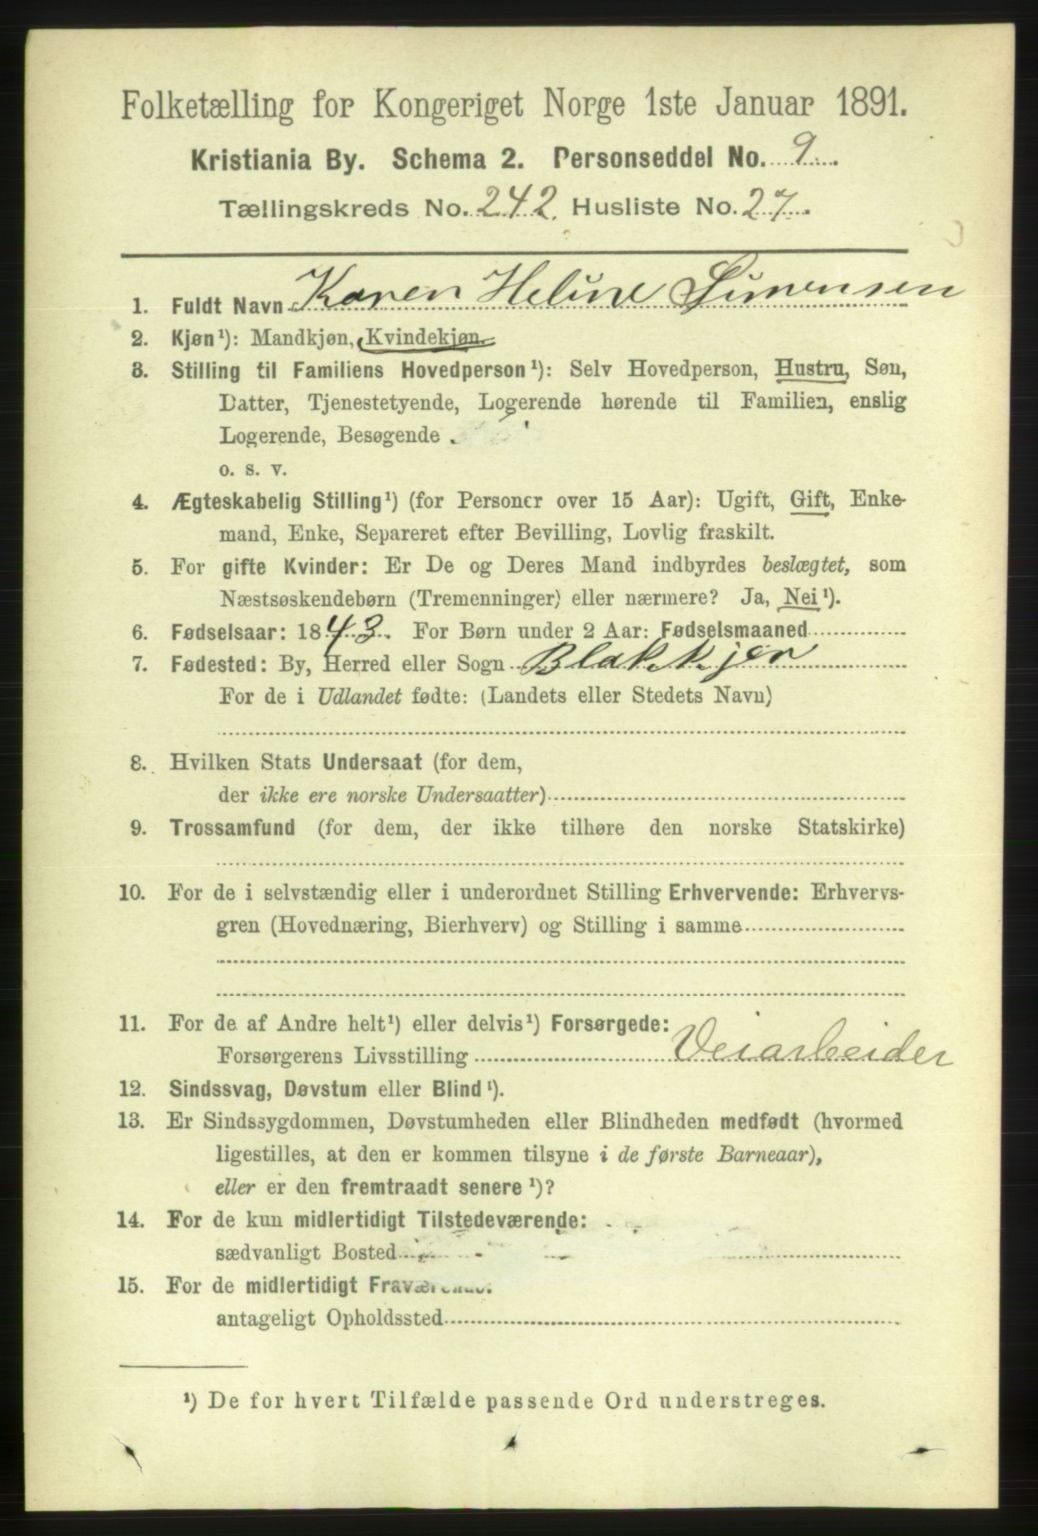 Folketælling for Kongeriget Norge 1ste Januar 1891.
Kristiania By. Schema 2. Personseddel No. 9.
Tællingskreds No. 242. Husliste No. 27.
1. Fuldt Navn Karen Heline Simensen
2. Kjøn¹): Mandkjøn, Kvindekjøn.
3. Stilling til Familiens Hovedperson¹): Selv Hovedperson, Hustru, Søn,
Datter, Tjenestetyende, Logerende hørende til Familien, enslig
Logerende, Besøgende .
o. s. v.
4. Ægteskabelig Stilling¹) (for Personer over 15 Aar): Ugift, Gift, Enke-
mand, Enke, Separeret efter Bevilling, Lovlig fraskilt.
5. For gifte Kvinder: Er De og Deres Mand indbyrdes beslægtet, som
Næstsøskendebørn (Tremenninger) eller nærmere? Ja, Nei¹).
6. Fødselsaar: 1843. For Børn under 2 Aar: Fødselsmaaned
7. Fødested: By, Herred eller Sogn Blakkjer
For de i Udlandet fødte: (Landets eller Stedets Navn)
8. Hvilken Stats Undersaat (for dem,
der ikke ere norske Undersaatter)
9. Trossamfund (for dem, der ikke tilhøre den norske Statskirke)
10. For de i selvstændig eller i underordnet Stilling Erhvervende: Erhvervs-
gren (Hovednæring, Bierhverv) og Stilling i samme
11. For de af Andre helt¹) eller delvis¹) Forsørgede:
Forsørgerens Livsstilling Veiarbeider
12. Sindssvag, Døvstum eller Blind¹).
13. Er Sindssygdommen, Døvstumheden eller Blindheden medfødt (hvormed
ligestilles, at den er kommen tilsyne i de første Barneaar),
eller er den fremtraadt senere¹)?
14. For de kun midlertidigt Tilstedeværende:
sædvanligt Bosted
15. For de midlertidigt Fraværende:
antageligt Opholdssted
¹) De for hvert Tilfælde passende Ord understreges.